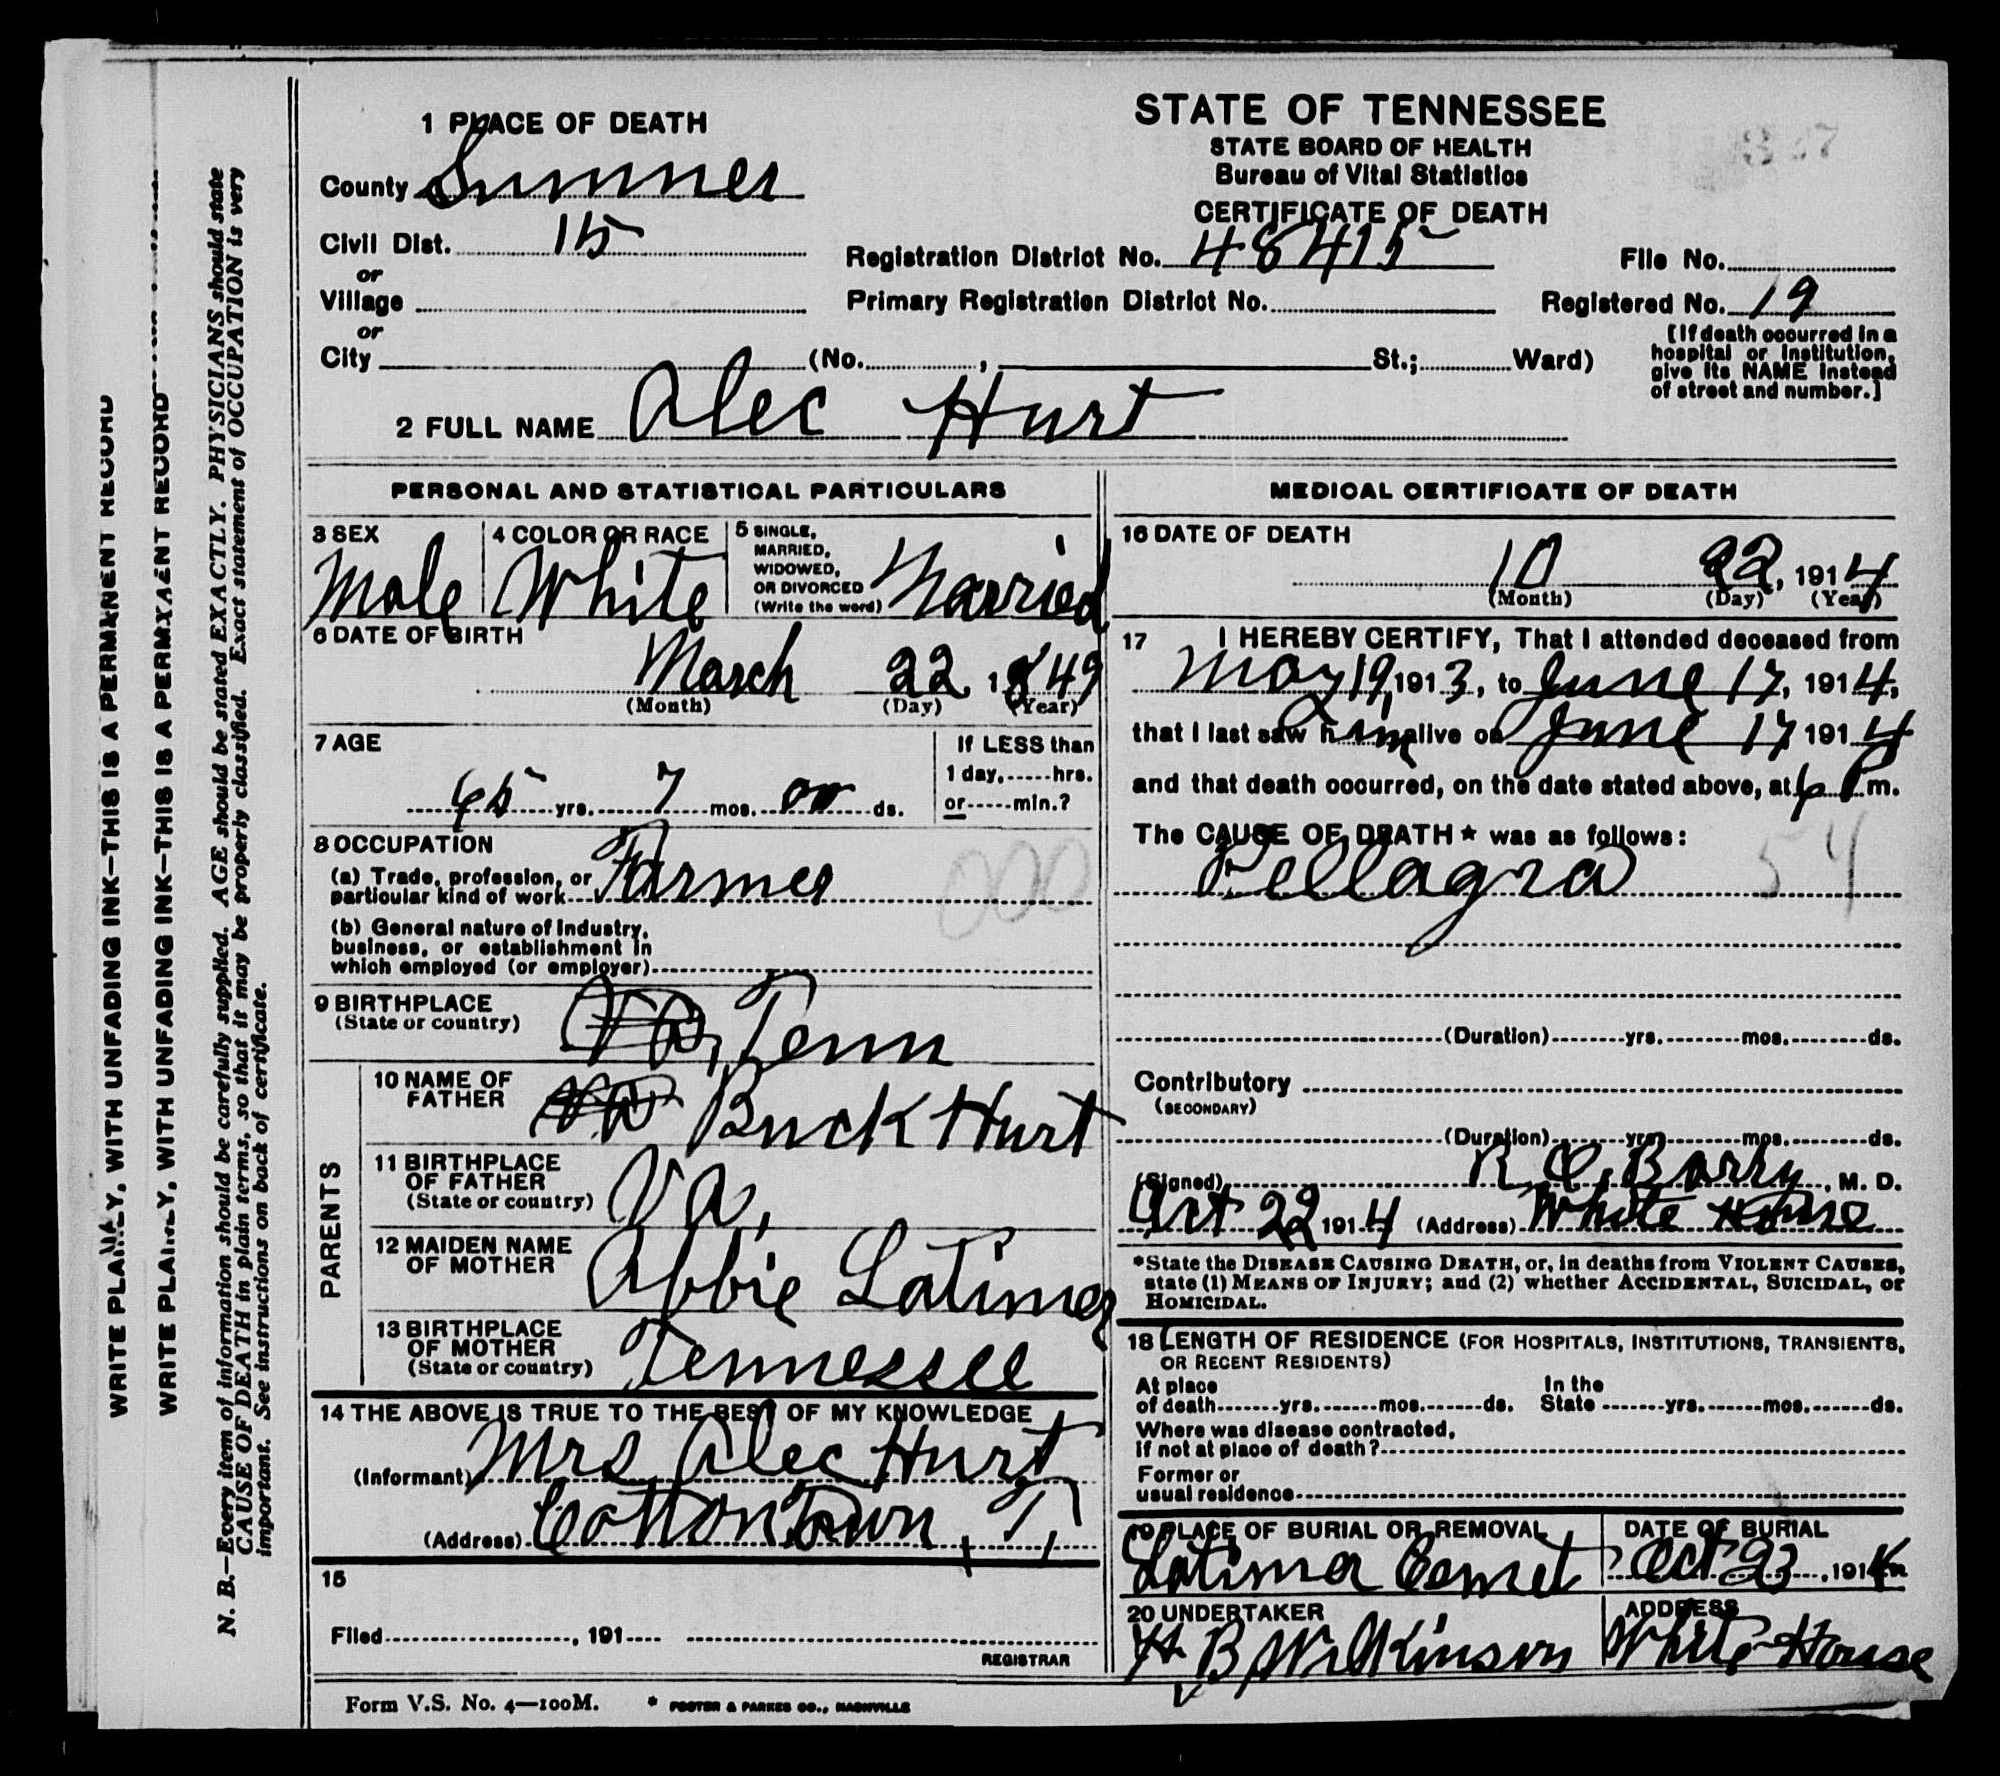 STATE OF TENNESSEE
STATE BOARD OF HEALTH
Bureau of Vital Statistics
CERTIFICATE OF DEATH
1 PLACE OF DEATH
County Sumner
Civil Dist. 15
or
Village
or
City (No. , St.; Ward)
Registration District No. 48415
File No.
Primary Registration District No.
Registered No. 19
[If death occurred in a
hospital or institution,
give its NAME instead
of street and number.]
2 FULL NAME Alec Hurt
PERSONAL AND STATISTICAL PARTICULARS
3 SEX
Male
4 COLOR OR RACE
White
5 SINGLE,
MARRIED,
WIDOWED,
OR DIVORCED
(Write the word)
Married
6 DATE OF BIRTH
March 22, 1849
(Month) (Day) (Year)
7 AGE
65 yrs. 7 mos. 00 ds.
If LESS than
1 day, hrs.
or min.?
8 OCCUPATION
(a) Trade, profession, or
particular kind of work Farmer
000
(b) General nature of Industry,
business, or establishment in
which employed (or employer)
9 BIRTHPLACE
(State or country)
Tenn
PARENTS
10 NAME OF
FATHER
Buck Hurt
11 BIRTHPLACE
OF FATHER
(State or country)
Va.
12 MAIDEN NAME
OF MOTHER
Abbie Latimer
13 BIRTHPLACE
OF MOTHER
(State or country)
Tennessee
14 THE ABOVE IS TRUE TO THE BEST OF MY KNOWLEDGE
(Informant) Mrs Alec Hurt
(Address) Cottontown, T,
15
Filed , 191
REGISTRAR
MEDICAL CERTIFICATE OF DEATH
16 DATE OF DEATH
10 22, 1914
(Month) (Day) (Year)
17 I HEREBY CERTIFY, That I attended deceased from
May 19, 1913, to June 17, 1914,
that I last saw him alive on June 17 1914
and that death occurred, on the date stated above, at 6 P m.
The CAUSE OF DEATH* was as follows:
Pellagra 54
(Duration) yrs. mos. ds.
Contributory
(SECONDARY)
(Duration) yrs. mos. ds.
(Signed) Barry, M. D.
Oct 22 1914 (Address) White House
*State the DISEASE CAUSING DEATH, or, in deaths from VIOLENT CAUSES,
state (1) MEANS OF INJURY; and (2) whether ACCIDENTAL, SUICIDAL, or
HOMICIDAL.
18 LENGTH OF RESIDENCE (FOR HOSPITALS, INSTITUTIONS, TRANSIENTS,
OR RECENT RESIDENTS)
At place
of death yrs. mos. ds.
In the
State yrs. mos. ds.
Where was disease contracted,
If not at place of death?
Former or
usual residence
19 PLACE OF BURIAL OR REMOVAL
Latimer Cemet
DATE OF BURIAL
Oct 23, 1914
20 UNDERTAKER
H B Wilkinson
ADDRESS
White House
Form V.S. No. 4—100M.
* FOSTER & PARKES CO., NASHVILLE
WRITE PLAINLY, WITH UNFADING INK—THIS IS A PERMANENT RECORD
WRITE PLAINLY, WITH UNFADING INK—THIS IS A PERMANENT RECORD
N. B.—Every item of information should be carefully supplied. AGE should be stated EXACTLY. PHYSICIANS should state
CAUSE OF DEATH in plain terms, so that it may be properly classified. Exact statement of OCCUPATION is very
important. See instructions on back of certificate.